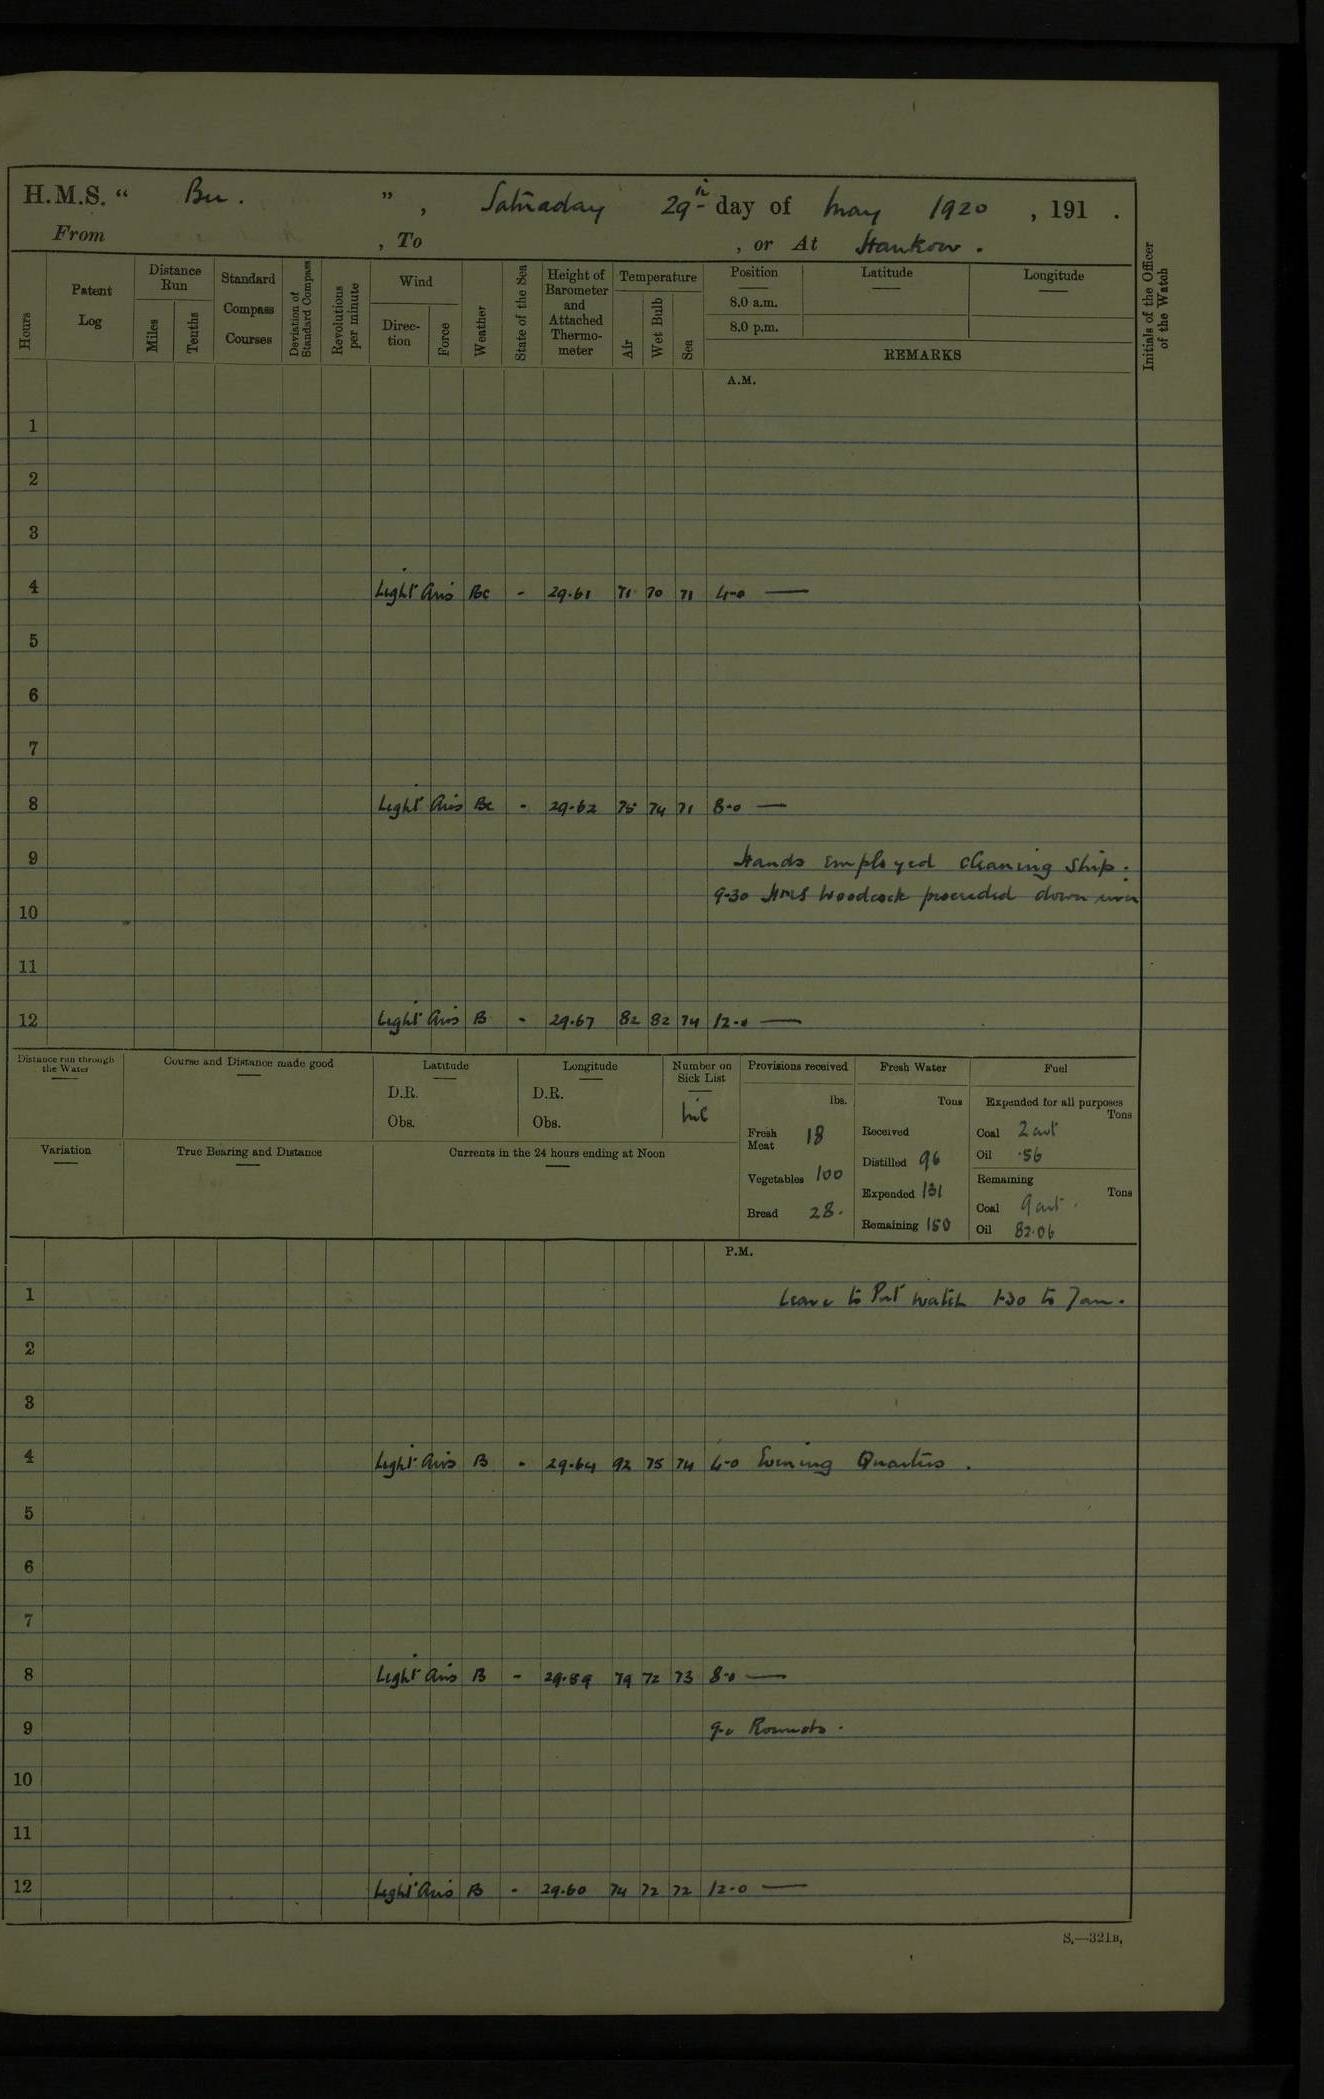 H.M.S. “ Bee. ” , Saturday 29th day of May 1920 , 191 .
From , To , or At Hankow .
Hours
Patent Log
Distance Run
Miles
Tenths
Standard Compass Courses
Deviation of Standard Compass
Revolutions per minute
Wind
Direc-tion
Force
Weather
State of the Sea
Height of Barometer and Attached Thermo-meter
Temperature
Air
Wet Bulb
Sea
Position Latitude Longitude
8.0 a.m.
8.0 p.m.
REMARKS
Initials of the Officer of the Watch
A.M.
1
2
3
4 Light Airs Bc - 29.61 71 70 71 4-0 —
5
6
7
8 Light Airs Bc - 29.62 75 74 71 8-0 —
9 Hands employed cleaning ship.
9-30 HMS Woodcock proceeded down river
10
11
12 Light Airs B - 29.67 82 82 74 12-0 —
Distance run through the Water
Course and Distance made good
Latitude
D.R.
Obs.
Longitude
D.R.
Obs.
Number on Sick List
nil
Variation
True Bearing and Distance
Currents in the 24 hours ending at Noon
Provisions received
lbs.
Fresh Meat 18
Vegetables 100
Bread 28.
Fresh Water
Tons
Received
Distilled 96
Expended 131
Remaining 150
Fuel
Expended for all purposes
Tons
Coal 2 cwt
Oil .56
Remaining
Tons
Coal 9 cwt.
Oil 82.06
P.M.
1 Leave to Port Watch 1-30 to 7am.
2
3
4 Light Airs B - 29.64 92 75 74 4-0 Evening Quarters .
5
6
7
8 Light Airs B - 29.59 79 72 73 8-0 —
9 9-0 Rounds .
10
11
12 Light Airs B - 29.60 74 72 72 12-0 —
S.—321B.